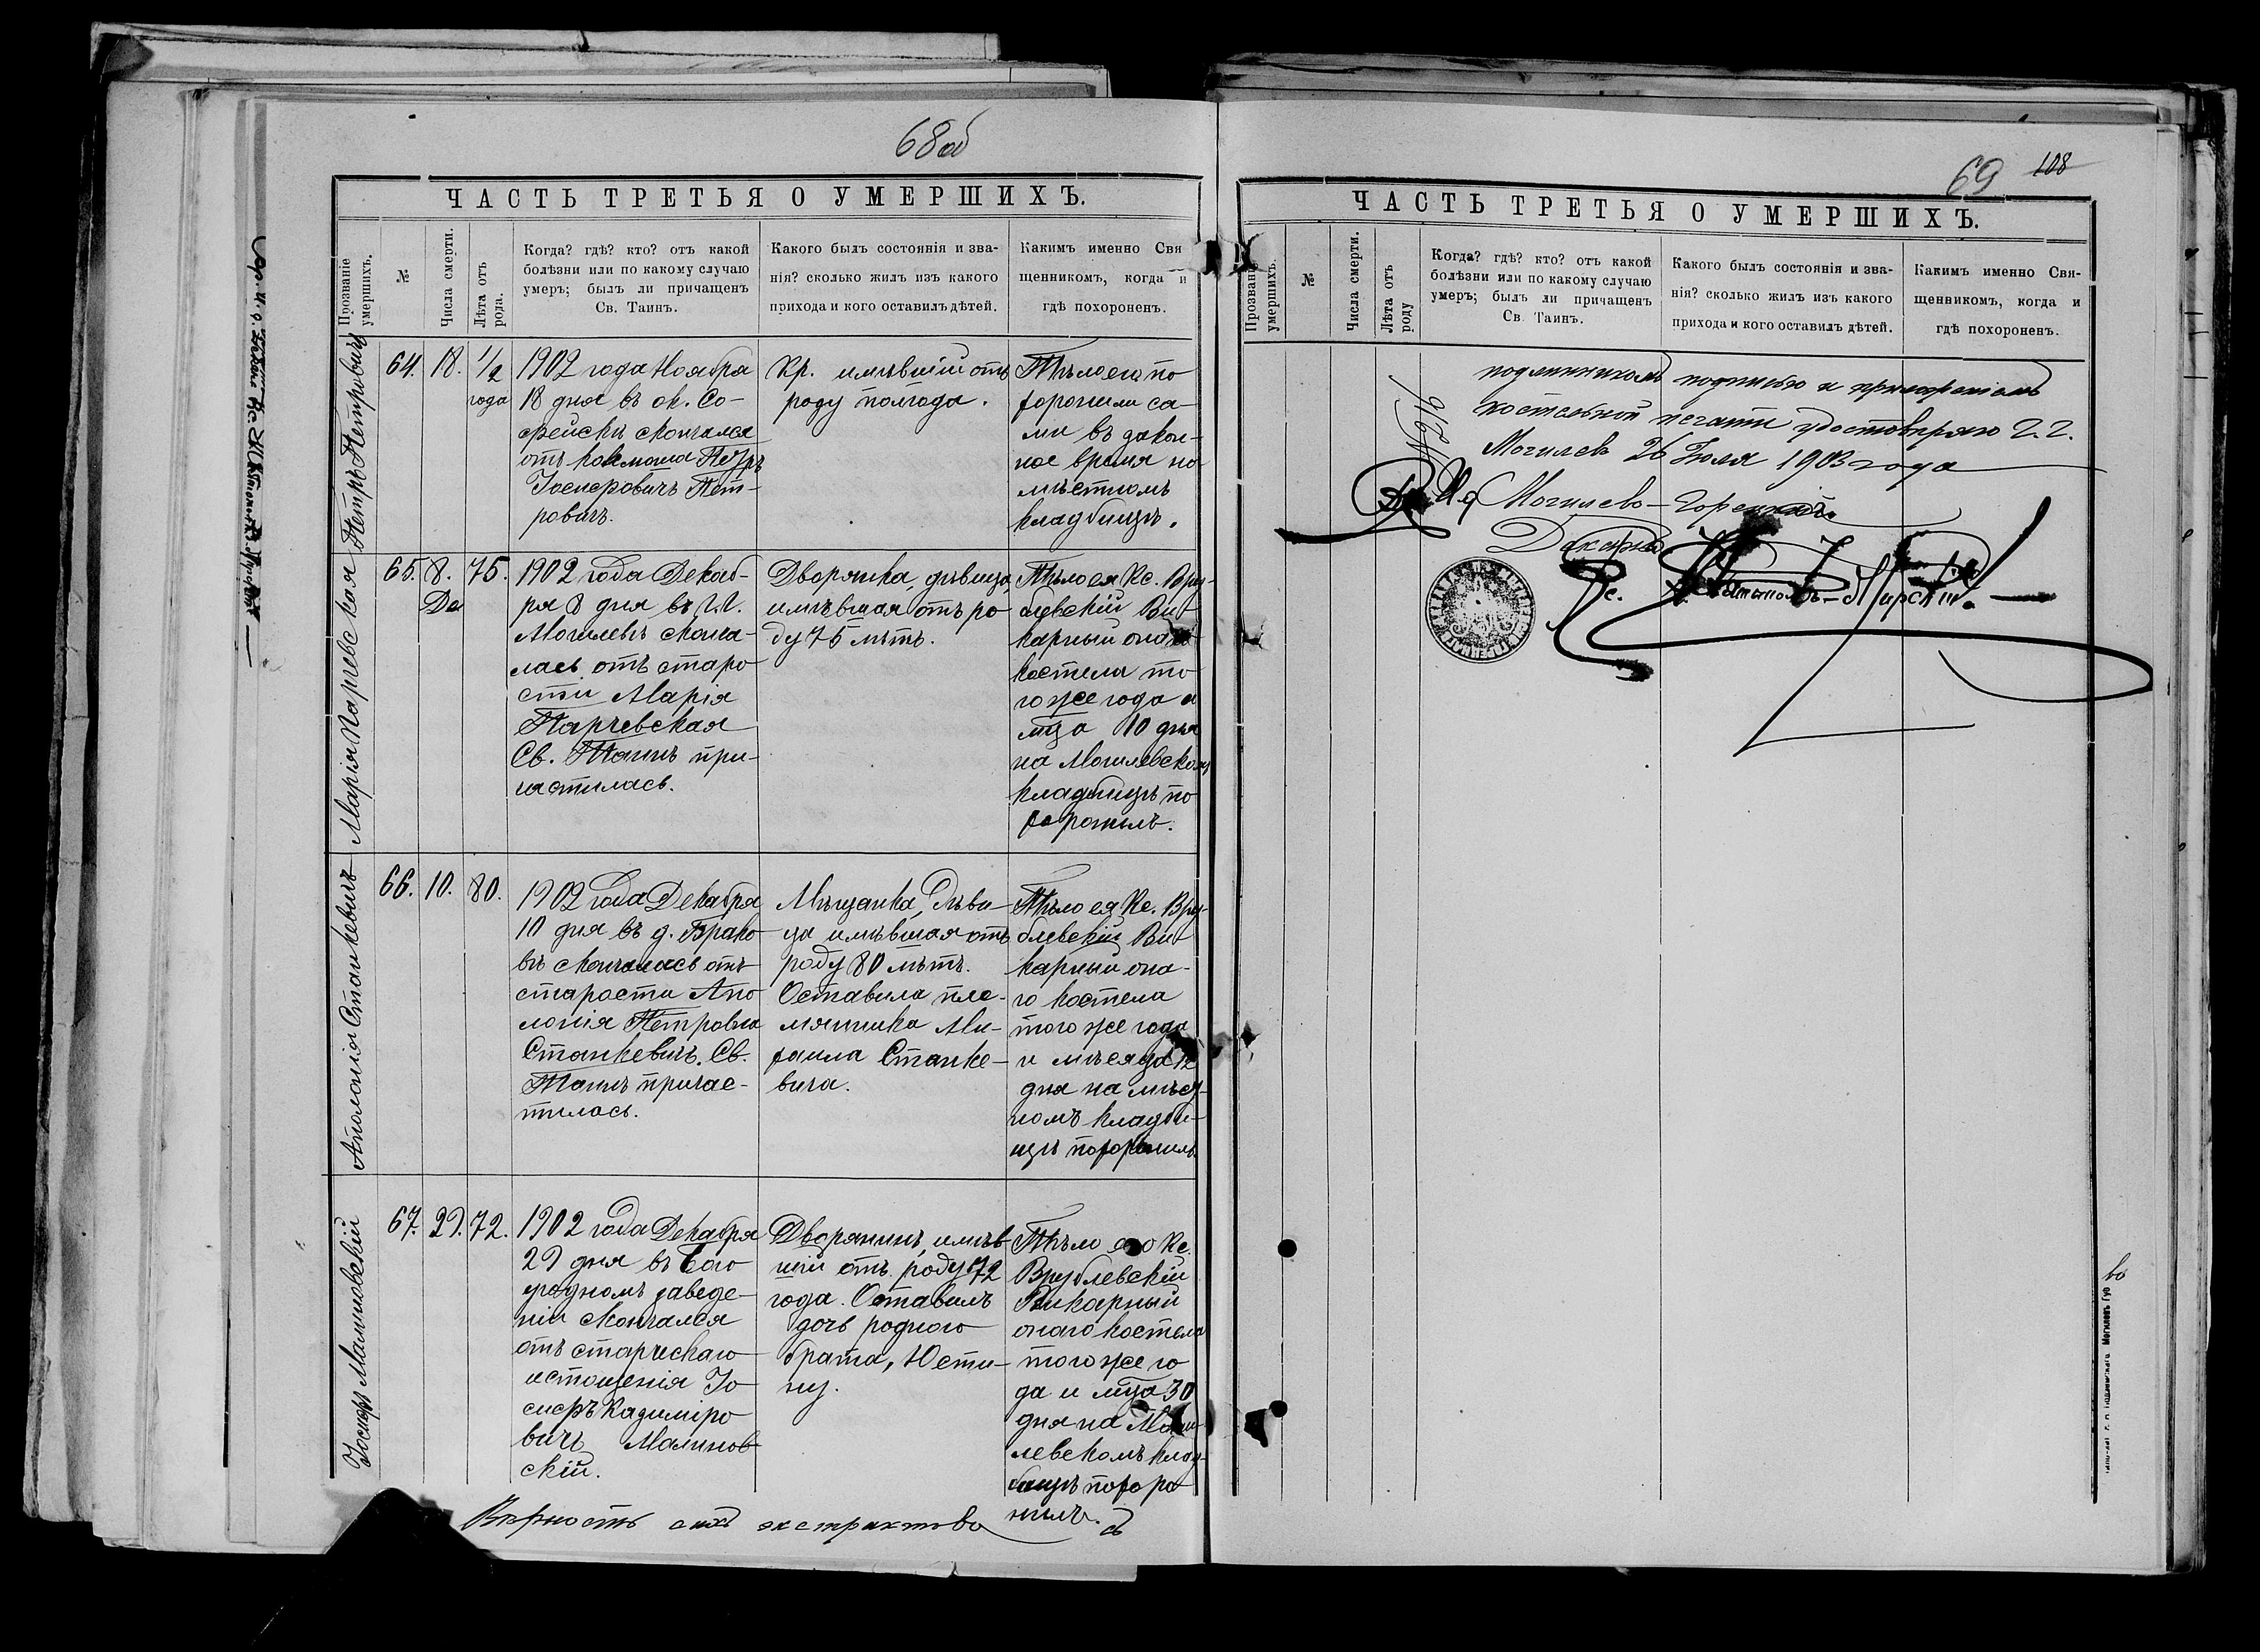 68об
ЧАСТЬ ТРЕТЬЯ О УМЕРШИХЪ.
Прозваніе умершихъ.
№
Числа смерти.
Лѣта отъ рода.
Когда? гдѣ? кто? отъ какой
болѣзни или по какому случаю
умеръ; былъ ли причащенъ
Св. Таинъ.
Какого былъ состоянія и зва-
нія? сколько жилъ изъ какого
прихода и кого оставилъ дѣтей.
Какимъ именно Свя
щенникомъ, когда и
гдѣ похороненъ.
Петръ Петровичъ
64.
18.
1/2
года
1902 года Ноября
18 дня въ ок. Со-
фейскѣ скончался
отъ Петръ
Іосифовичъ Пет-
ровичъ.
Кр. имѣвшій отъ
роду полгода.
Тѣло его по
хоронили са-
ми въ закон-
ное время на
мѣстномъ
кладбищѣ.
Марія Парчевская
65.
8.
Де
75.
1902 года Декаб-
ря 8 дня въ г. г.
Могилевѣ сконча-
лась отъ старо
сти Марія
Парчевская
Св. Таинъ при-
частилась.
Дворянка, дѣвица,
имѣвшая отъ ро
ду 75 лѣтъ.
Тѣло ея Кс. Вру-
блевскій Ви-
карный онаго
костела то
го же года и
мца 10 дня
на Могилевскомъ
кладбищѣ по
хоронилъ.
Аполонія Станкевичъ
66.
10.
80.
1902 года Декабря
10 дня въ д. Брако
вѣ скончалась отъ
старости Апо
лонія Петровна
Станкевичъ. Св.
Таинъ причас-
тилась.
Мѣщанка, Дѣви-
ца имѣвшая отъ
роду 80 лѣтъ.
Оставила пле-
мянника Ми-
хаила Станке-
вича.
Тѣло ея Кс. Вру-
блевскій Ви-
карный она-
го костела
того же года
и мѣсяца 12
дня на мѣст-
номъ кладби-
щѣ похоронилъ.
Іосифъ Малиновскій
67.
29.
72.
1902 года Декабря
29 дня въ Бого
угодномъ заведе-
ніи скончался
отъ старческаго
истощенія Іо
сифъ Казиміро
вичъ Малинов-
скій.
Дворянинъ, имѣв-
шій отъ роду 72
года. Оставилъ
дочь родного
брата, Юсти-
ну.
Тѣло его Кс.
Врублевскій
Викарный
онаго костела
того же го
да и мца 30
дня на Моги-
левскомъ клад-
бищѣ похоро
нилъ.
Вѣрность сихъ экстрактовъ съ
69
108
ЧАСТЬ ТРЕТЬЯ О УМЕРШИХЪ.
Прозваніе умершихъ.
№
Числа смерти.
Лѣта отъ роду
Когда? гдѣ? кто? отъ какой
болѣзни или по какому случаю
умеръ; былъ ли причащенъ
Св. Таинъ.
Какого былъ состоянія и зва-
нія? сколько жилъ изъ какого
прихода и кого оставилъ дѣтей.
Какимъ именно Свя-
щенникомъ, когда и
гдѣ похороненъ.
подлинникомъ подписью и приложеніемъ
костельной печати удостовѣряю г. г.
Могилевъ 26 Іюля 1903 года
И. д. Могилево-Горецкій
Деканъ
Кс.